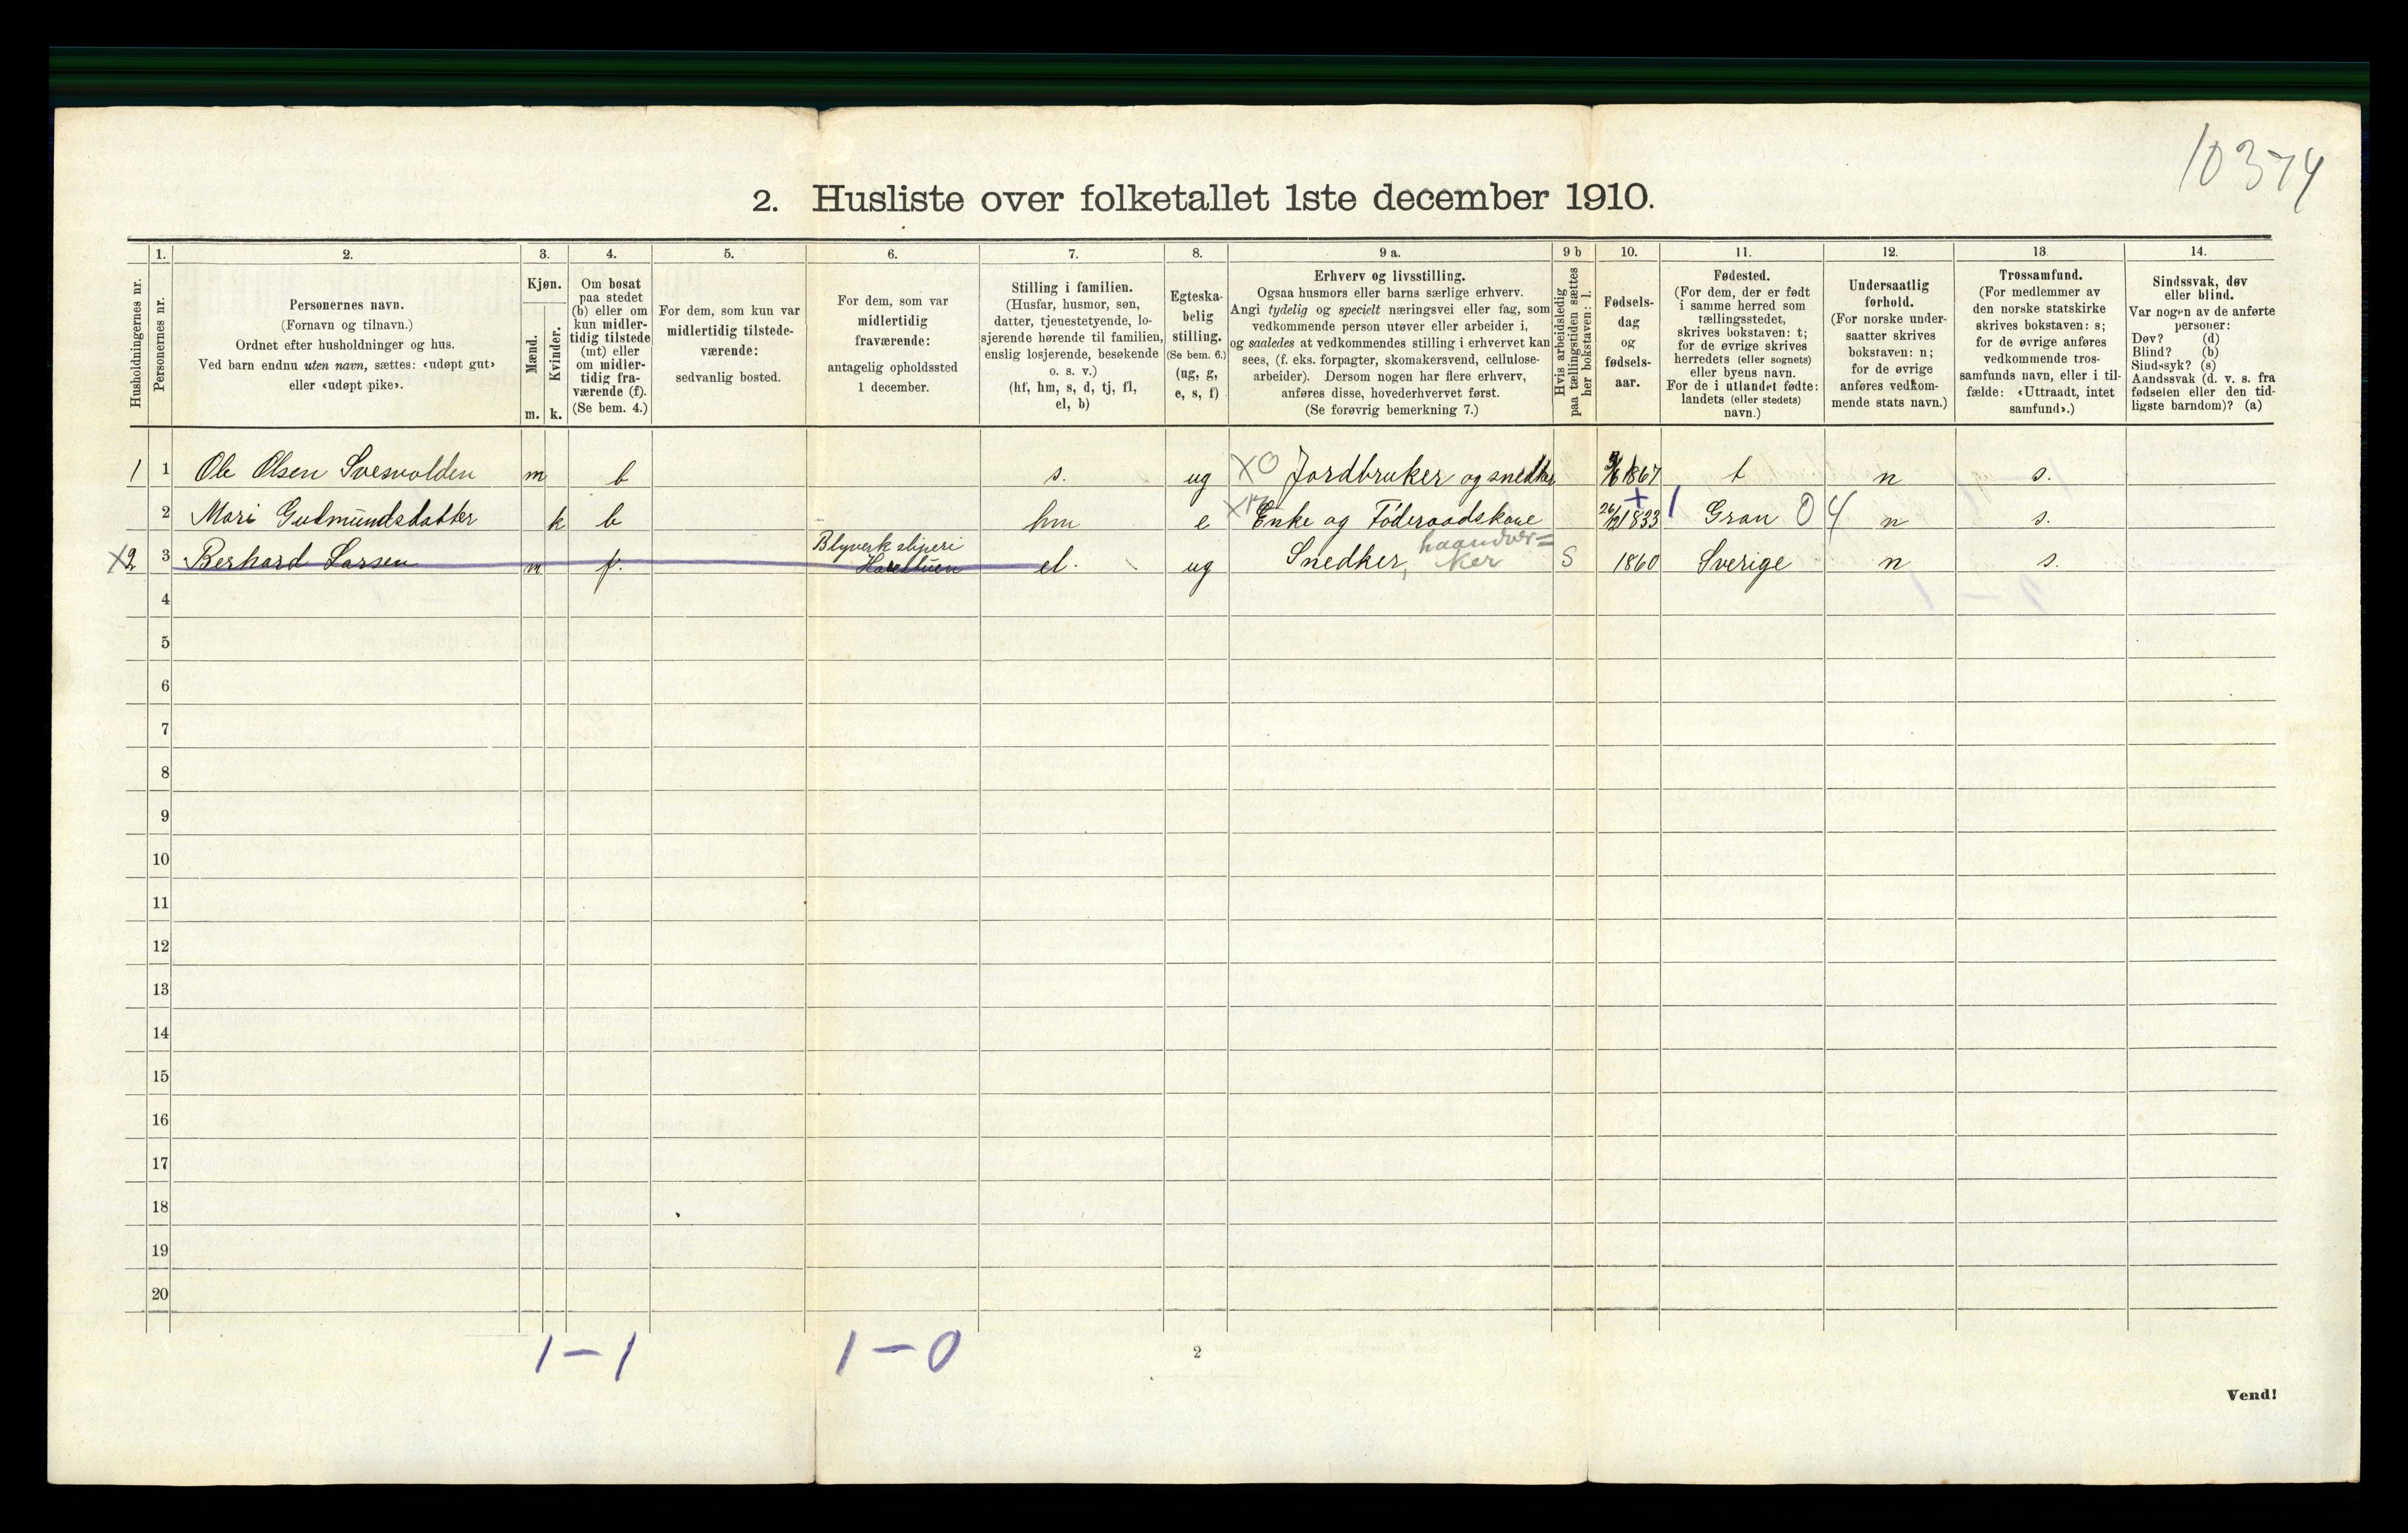 10374
2. Husliste over folketallet 1ste december 1910.
Husholdningernes nr.
1.
Personernes nr.
2.
Personernes navn.
(Fornavn og tilnavn.)
Ordnet efter husholdninger og hus.
Ved barn endnu uten navn, sættes: «udøpt gut»
eller «udøpt pike».
3.
Kjøn.
Mænd.
Kvinder.
m. k.
4.
Om bosat
paa stedet
(b) eller om
kun midler-
tidig tilstede
(mt) eller
om midler-
tidig fra-
værende (f).
(Se bem. 4.)
5.
For dem, som kun var
midlertidig tilstede-
værende:
sedvanlig bosted.
6.
For dem, som var
midlertidig
fraværende:
antagelig opholdssted
1 december.
7.
Stilling i familien.
(Husfar, husmor, søn,
datter, tjenestetyende, lo-
sjerende hørende til familien,
enslig losjerende, besøkende
o. s. v.)
(hf, hm, s, d, tj, fl,
el, b)
8.
Egteska-
belig
stilling.
(Se bem. 6.)
(ug, g,
e, s, f)
9 a.
Erhverv og livsstilling.
Ogsaa husmors eller barns særlige erhverv.
Angi tydelig og specielt næringsvei eller fag, som
vedkommende person utøver eller arbeider i,
og saaledes at vedkommendes stilling i erhvervet kan
sees, (f. eks. forpagter, skomakersvend, cellulose-
arbeider). Dersom nogen har flere erhverv,
anføres disse, hovederhvervet først.
(Se forøvrig bemerkning 7.)
9 b
Hvis arbeidsledig
paa tællingstiden sættes
her bokstaven: l.
10.
Fødsels-
dag
og
fødsels-
aar.
11.
Fødested.
(For dem, der er født
i samme herred som
tællingsstedet,
skrives bokstaven: t;
for de øvrige skrives
herredets (eller sognets)
eller byens navn.
For de i utlandet fødte:
landets (eller stedets)
navn.)
12.
Undersaatlig
forhold.
(For norske under-
saatter skrives
bokstaven: n;
for de øvrige
anføres vedkom-
mende stats navn.)
13.
Trossamfund.
(For medlemmer av
den norske statskirke
skrives bokstaven: s;
for de øvrige anføres
vedkommende tros-
samfunds navn, eller i til-
fælde: «Uttraadt, intet
samfund».)
14.
Sindssvak, døv
eller blind.
Var nogen av de anførte
personer:
Døv? (d)
Blind? (b)
Sindssyk? (s)
Aandssvak (d. v. s. fra
fødselen eller den tid-
ligste barndom)? (a)
1 1 Ole Olsen Svesvolden m b s. ug XO Jordbruker og snedker 1867 t n s.
2 Mari Gudmundsdatter k b hm e Enke og Føderaadskone 26/12 1833 + 1 Gran 04 n s.
X2 3 Berhard Larsen m f. Blyverk sliperi Harestuen el. ug Snedker, haandver= ker S 1860 Sverige n s.
4
5
6
7
8
9
10
11
12
13
14
15
16
17
18
19
20
1-1 1-0
2
Vend!